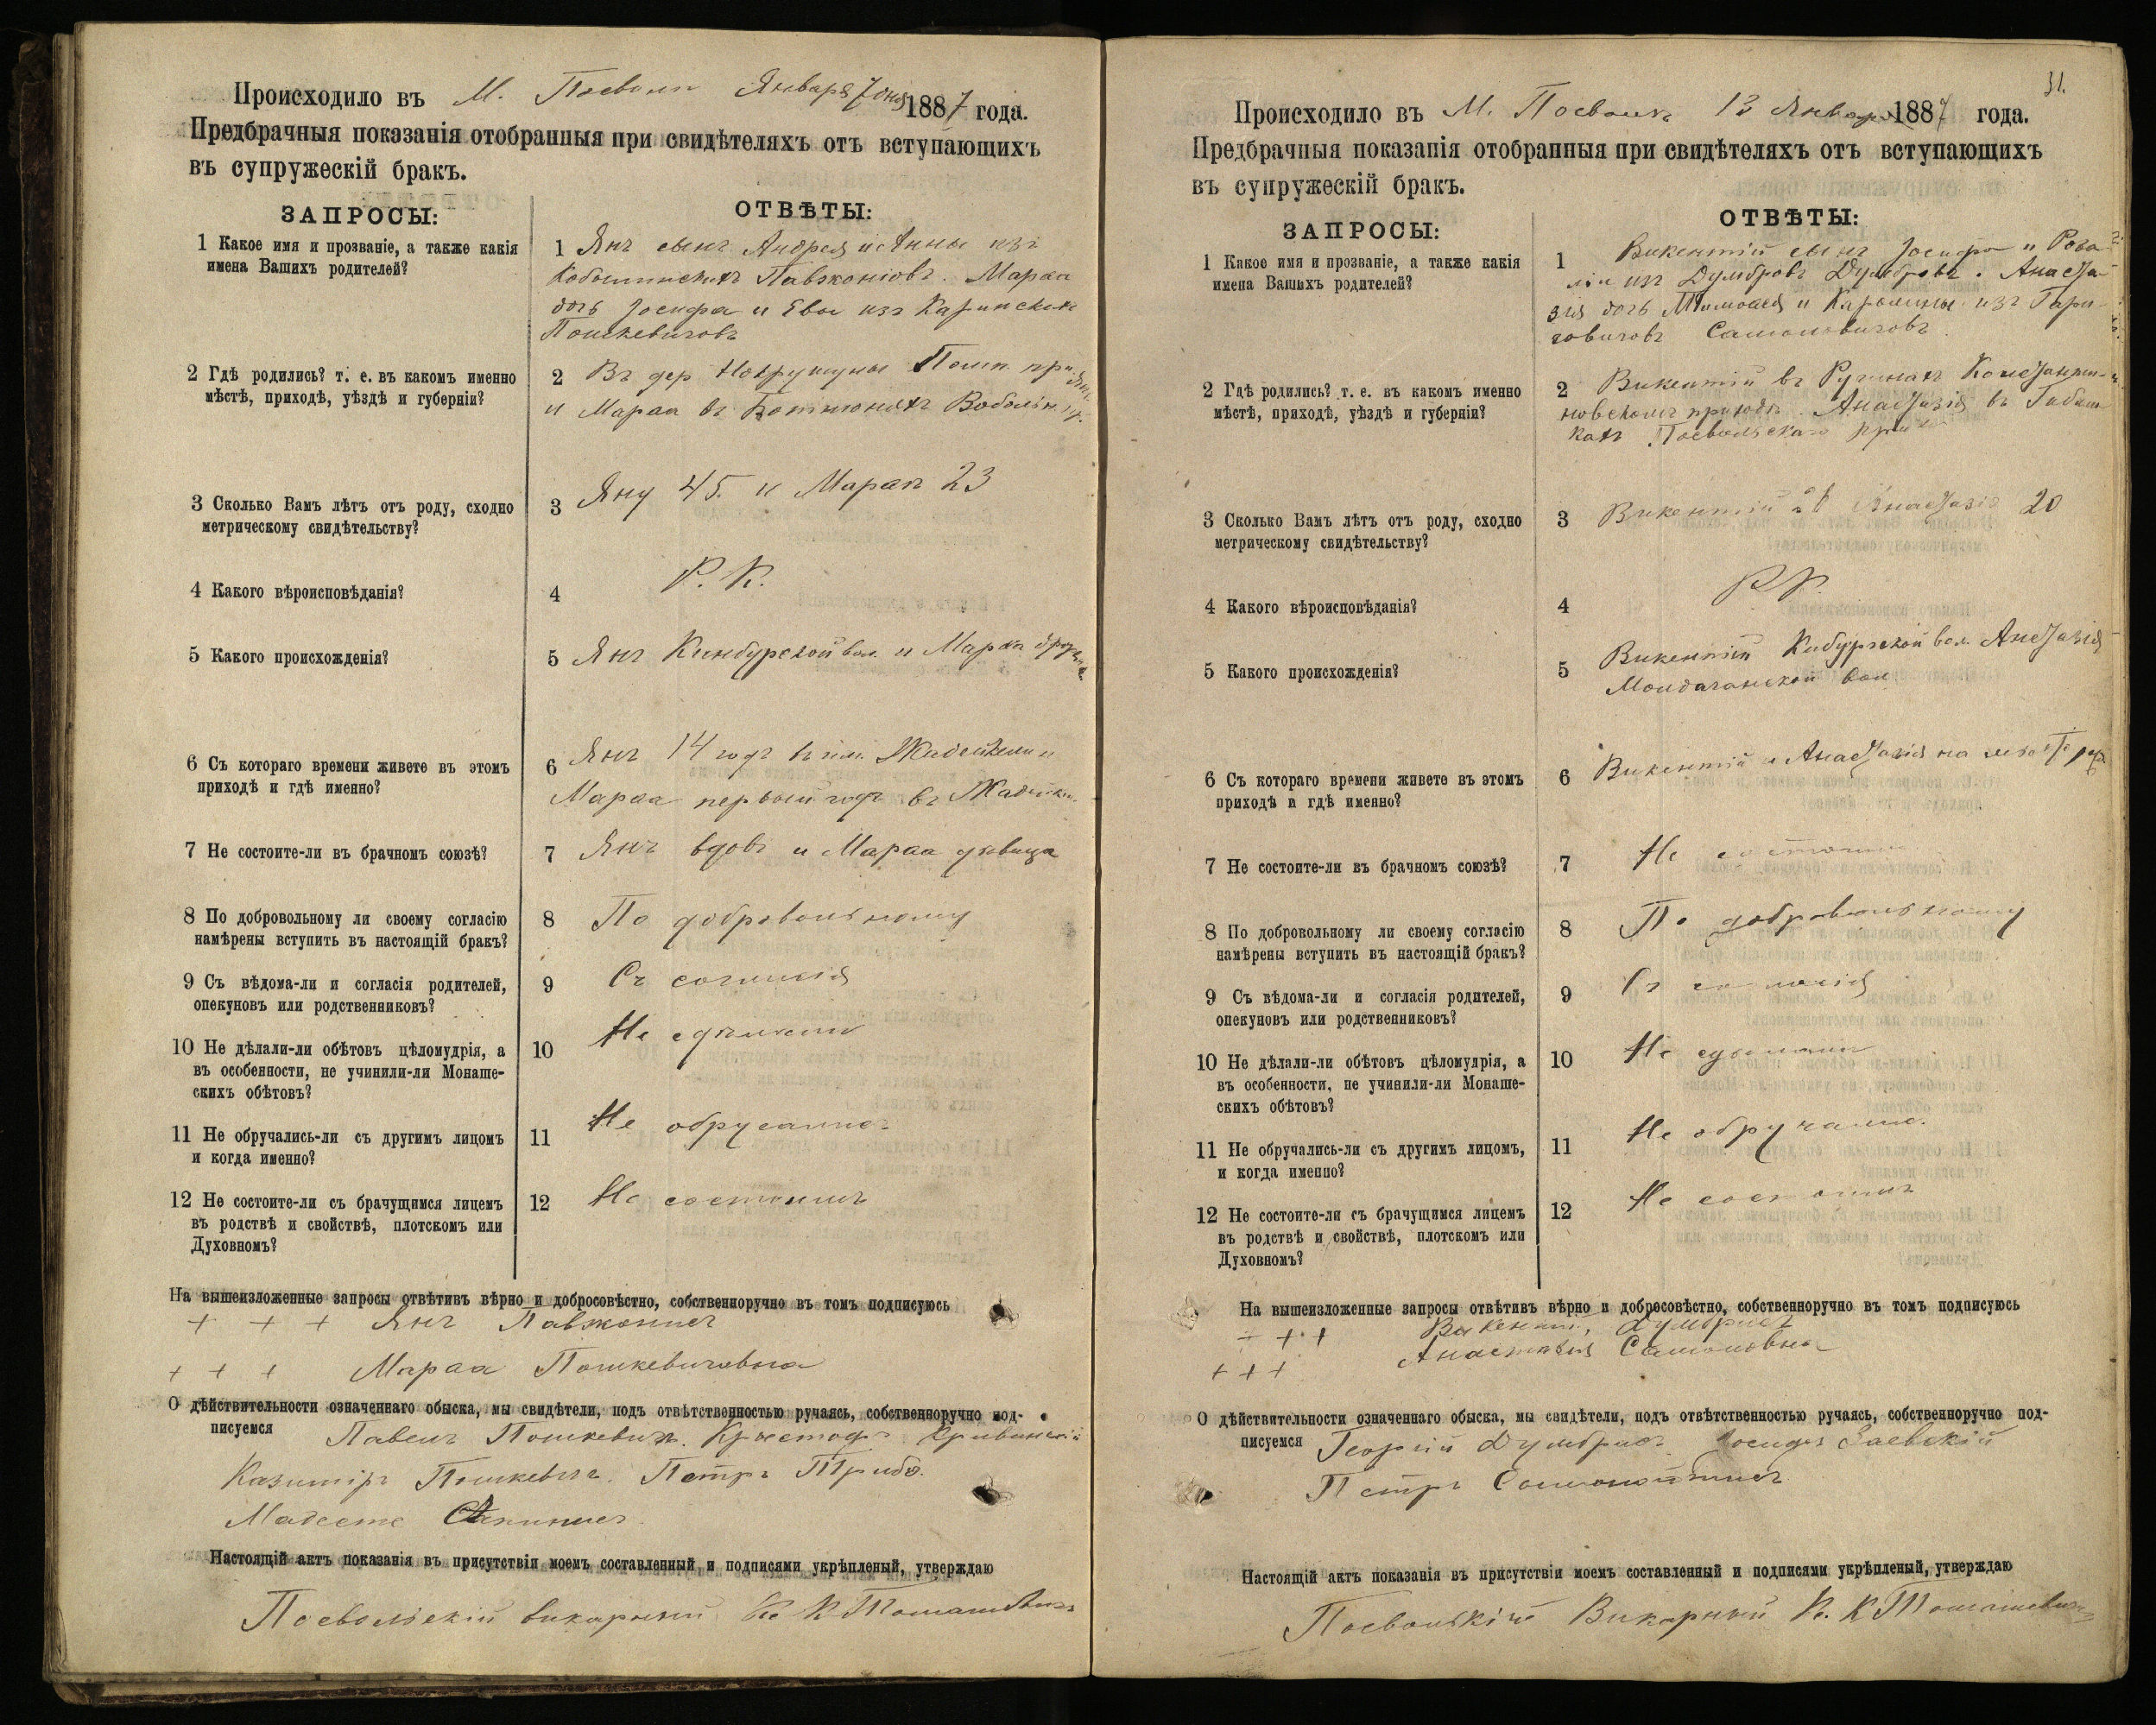 Происходило въ М. Посволи Января 7 дня 1887 года.
Предбрачныя показанія отобранныя при свидѣтеляхъ отъ вступающихъ
въ супружескій бракъ.
ЗАПРОСЫ:
ОТВѢТЫ:
1 Какое имя и прозваніе, а также какія
имена Вашихъ родителей?
1 Янъ сынъ Андрея и Анны изъ
Павжоніовъ. Марва
дочь Іосифа и Евы изъ
Пошкевичовъ
2 Гдѣ родились? т. е. въ какомъ именно
мѣстѣ, приходѣ, уѣздѣ и губерніи?
2 Въ дер
и Марва въ
3 Сколько Вамъ лѣтъ отъ роду, сходно
метрическому свидѣтельству?
3 Яну 45. и Марвѣ 23
4 Какого вѣроисповѣданія?
4 Р. К.
5 Какого происхожденія?
5 Янъ Кинбурской вол. и Марва
6 Съ котораго времени живете въ этомъ
приходѣ и гдѣ именно?
6 Янъ 14 годъ въ им.
Марва первый годъ въ
7 Не состоите-ли въ брачномъ союзѣ?
7 Янъ вдовъ и Марва дѣвица
8 По добровольному ли своему согласію
намѣрены вступить въ настоящій бракъ?
8 По добровольному
9 Съ вѣдома-ли и согласія родителей,
опекуновъ или родственниковъ?
9 Съ согласія
10 Не дѣлали-ли обѣтовъ цѣломудрія, а
въ особенности, не учинили-ли Монаше-
скихъ обѣтовъ?
10 Не сдѣлали
11 Не обручались-ли съ другимъ лицомъ
и когда именно?
11 Не обручались
12 Не состоите-ли съ брачущимся лицемъ
въ родствѣ и свойствѣ, плотскомъ или
Духовномъ?
12 Не состоимъ
На вышеизложенные запросы отвѣтивъ вѣрно и добросовѣстно, собственноручно въ томъ подписуюсь
+ + + Янъ Павжонисъ
+ + + Марва Пошкевичовна
О дѣйствительности означеннаго обыска, мы свидѣтели, подъ отвѣтственностью ручаясь, собственноручно под-
писуемся Павелъ Пошкевичъ. Кривинскій
Казиміръ Пошкевичъ. Петръ
Настоящій актъ показанія въ присутствіи моемъ составленный и подписями укрѣпленый, утверждаю
Посвольскій викарный Кс К Томашевичъ
31.
Происходило въ М. Посволь 13 Января 1887 года.
Предбрачныя показанія отобранныя при свидѣтеляхъ отъ вступающихъ
въ супружескій бракъ.
ЗАПРОСЫ:
ОТВѢТЫ:
1 Какое имя и прозваніе, а также какія
имена Вашихъ родителей?
1 Викентій сынъ Іосифа и Роза
ліи изъ Думбровъ Думбровъ. Анаста
зія дочь и Каролины изъ
Самоновичовъ
2 Гдѣ родились? т. е. въ какомъ именно
мѣстѣ, приходѣ, уѣздѣ и губерніи?
2 Викентій въ Константи-
новскомъ приходѣ. Анастазія въ
Посвольскаго
3 Сколько Вамъ лѣтъ отъ роду, сходно
метрическому свидѣтельству?
3 Викентій Анастазія 20
4 Какого вѣроисповѣданія?
4 Р К.
5 Какого происхожденія?
5 Викентій вол. Анастазія
вол
6 Съ котораго времени живете въ этомъ
приходѣ и гдѣ именно?
6 Викентій и Анастазія на
7 Не состоите-ли въ брачномъ союзѣ?
7 Не состоимъ
8 По доброкольному ли своему согласію
намѣрены вступить въ настоящій бракъ?
8 По добровольному
9 Съ вѣдома-ли и согласія родителей,
опекуновъ или родственниковъ?
9 Съ согласія
10 Не дѣлали-ли обѣтовъ цѣломудрія, а
въ особенности, не учинили-ли Монаше-
скихъ обѣтовъ?
10 Не сдѣлали
11 Не обручались-ли съ другимъ лицомъ,
и когда именно?
11 Не обручались.
12 Не состоите-ли съ брачущимся лицемъ
въ родствѣ и свойствѣ, плотскомъ или
Духовномъ?
12 Не состоимъ
На вышеизложенные запросы отвѣтивъ вѣрно и добросовѣстно, собственноручно въ томъ подписуюсь
+ + + Викентій Думбрисъ
+ + + Анастазія Самоновна
О дѣйствительности означеннаго обыска, мы свидѣтели, подъ отвѣтственностью ручаясь, собственноручно под-
писуемся Георгій Думбрисъ Іосифъ Заевскій
Петръ
Настоящій актъ показанія въ присутствіи моемъ составленный и подписями укрѣпленый, утверждаю
Посвольскій Викарный К. К Томашевичъ